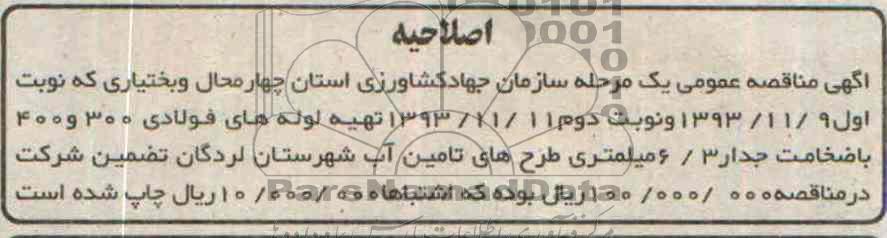 اصلاحیه
آگهی مناقصه عمومی یک مرحله سازمان جهادکشاورزی استان چهارمحال وبختیاری که نوبت
اول۹ /۱۱/ ۱۳۹۳ونوبت دوم۱۱ /۱۱/ ۱۳۹۳تهیه لوله های فولادی ۳۰۰ و۴۰۰
باضخامت جدار۳ / ۶میلمتری طرح های تامین آب شهرستان لردگان تضمین شرکت
درمناقصه۰۰۰ /۰۰۰/ ۱۰۰ریال بوده که اشتباها۰۰۰/۰۰۰/ ۱۰ریال چاپ شده است
ParsNamadData